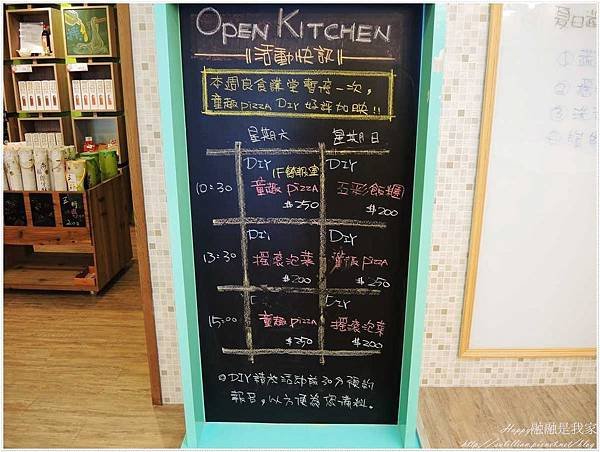 OPEN KITCHEN
活動快訊
本週良食講堂暫停一次,
童趣pizza DIY 好評加映!!
星期六 星期日
DIY 1F餐服室 DIY
10:30 童趣pizza 五彩飯糰
$250 $200
DIY DIY
13:30 搖滾泡菜 童趣pizza
$200 $250
DIY
15:00 童趣pizza 搖滾泡菜
$250 $200
DIY請於活動前30分預約
報名,以方便為您備料。
夏日
①
②
③
Happy融融是我家